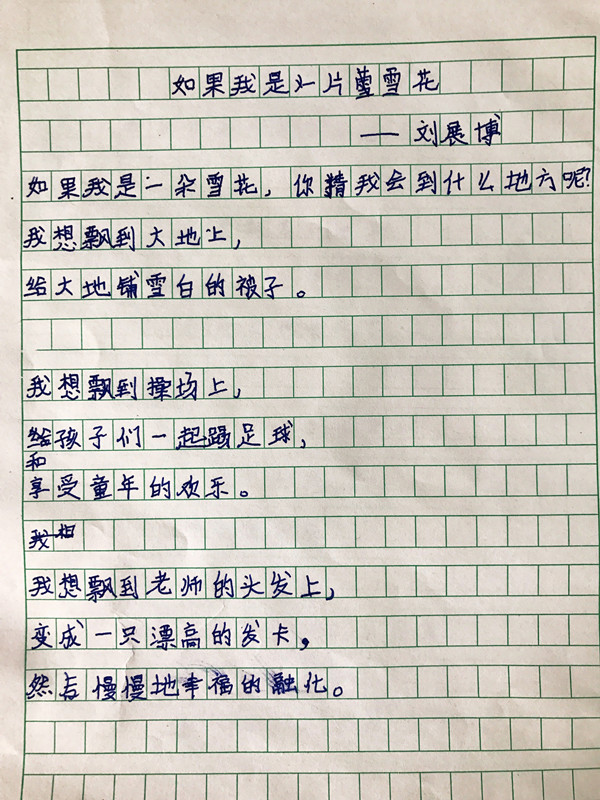 如果我是片雪花
——刘展博
如果我是一朵雪花，你猜我会到什么地方呢?
我想飘到大地上，
给大地铺雪白的被子。
我想飘到操场上，
给孩子们一起踢足球，
和
享受童年的欢乐。
我想
我想飘到老师的头发上，
变成一只漂亮的发卡，
然后慢慢地幸福的融化。